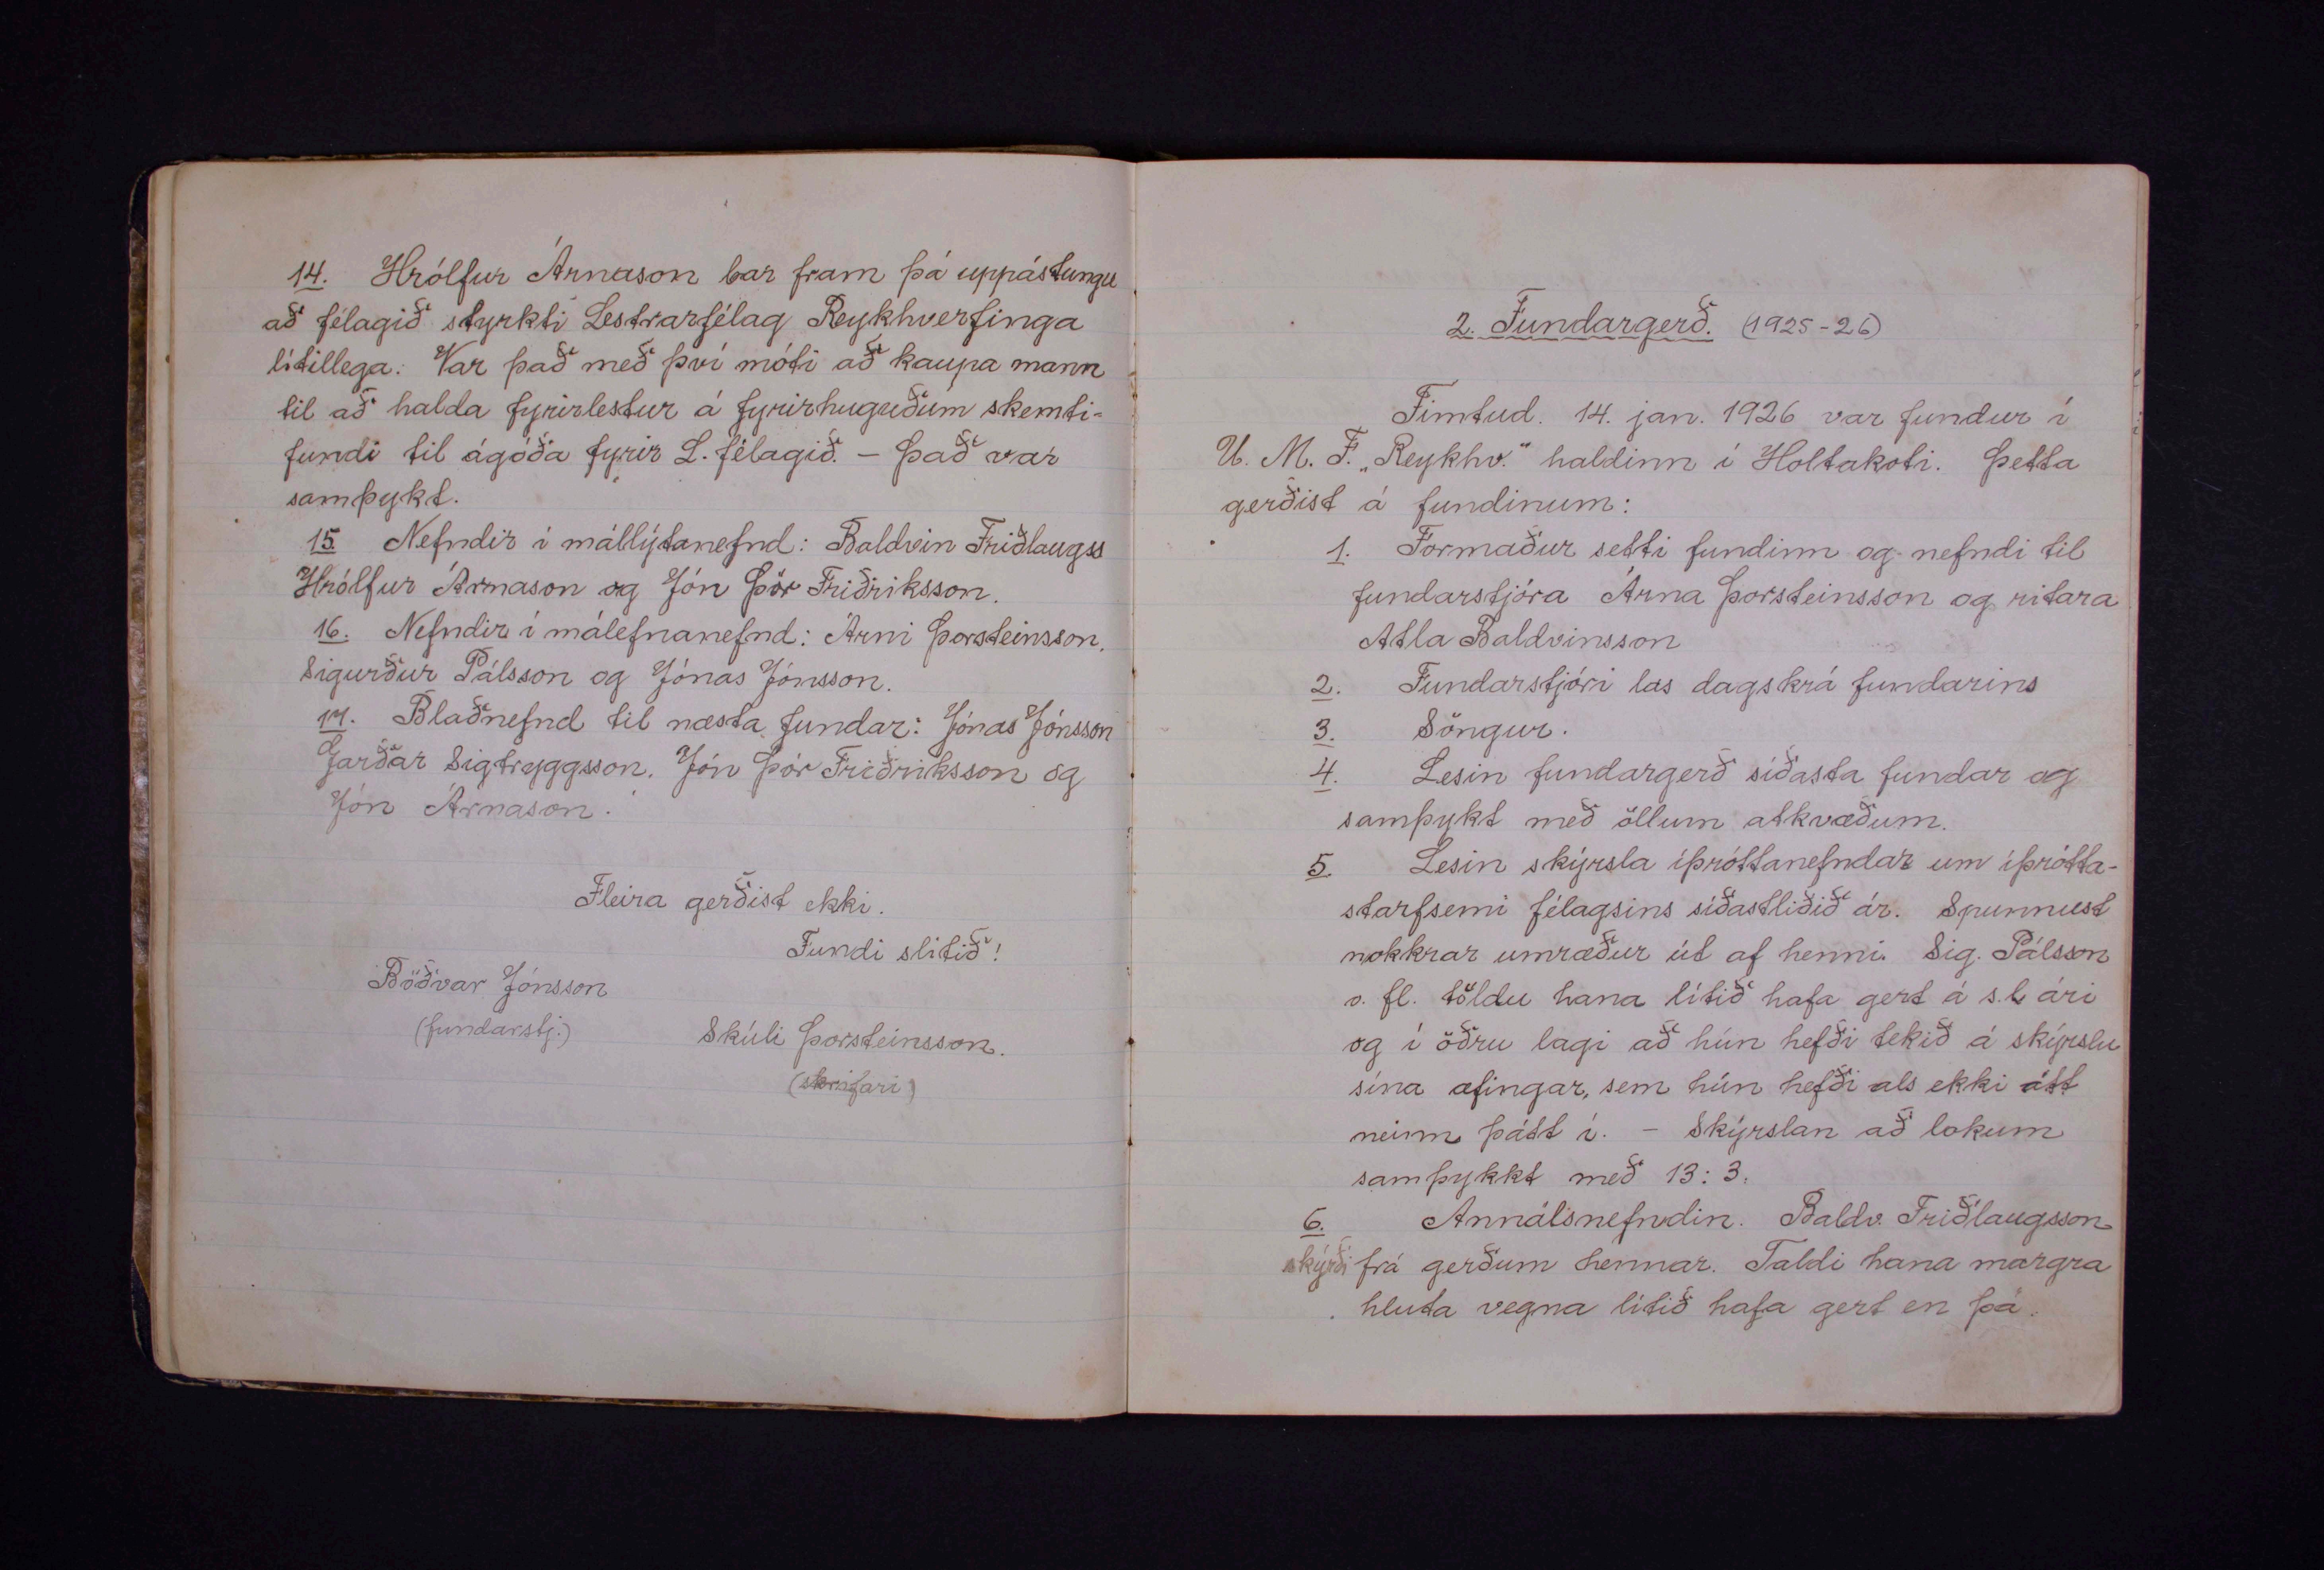 14. Hrólfur Árnason bar fram þá uppástungu
að félagið styrkti Lestrarfélag Reykhverfinga
lítillega. Var það með því móti að kaupa mann
til að halda fyrirlestur á fyrirhuguðum skemti-
fundi til ágóða fyrir L. félagið. - Það var
samþykt.
15. Nefndir í mállýtanefnd: Baldvin Friðlaugss
Hrólfur Árnason og Jón Þór Friðriksson.
16. Nefndir í málefnanefnd: Árni Þorsteinsson,
Sigurður Pálsson og Jónas Jónsson.
17. Blaðnefnd til næsta fundar: Jónas Jónsson
Garðar Sigtryggsson, Jón Þór Friðriksson og
Jón Árnason.
Fleira gerðist ekki.
Fundi slitið!
Böðvar Jónsson
(fundarstj.)
Skúli Þorsteinsson.
(skrifari)
2. Fundargerð. (1925-26)
Fimtud. 14. jan. 1926 var fundur í
U. M. F. „Reykhv." haldinn í Holtakoti. Þetta
gerðist á fundinum:
1. Formaður setti fundinn og nefndi til
fundarstjóra Árna Þorsteinsson og ritara
Atla Baldvinsson
2. Fundarstjóri las dagskrá fundarins
3. Söngur.
4. Lesin fundargerð síðasta fundar og
samþykt með öllum atkvæðum.
5. Lesin skýrsla íþróttanefndar um íþrótta-
starfsemi félagsins síðastliðið ár. Spunnust
nokkrar umræður út af henni. Sig. Pálsson
o. fl. töldu hana lítið hafa gert á s.l. ári
og í öðru lagi að hún hefði tekið á skýrslu
sína æfingar, sem hún hefði als ekki átt
neinn þátt í. - Skýrslan að lokum
samþykkt með 13:3.
6. Annálsnefndin. Baldv. Friðlaugsson
skýrði frá gerðum hennar. Taldi hana margra
hluta vegna lítið hafa gert en þá